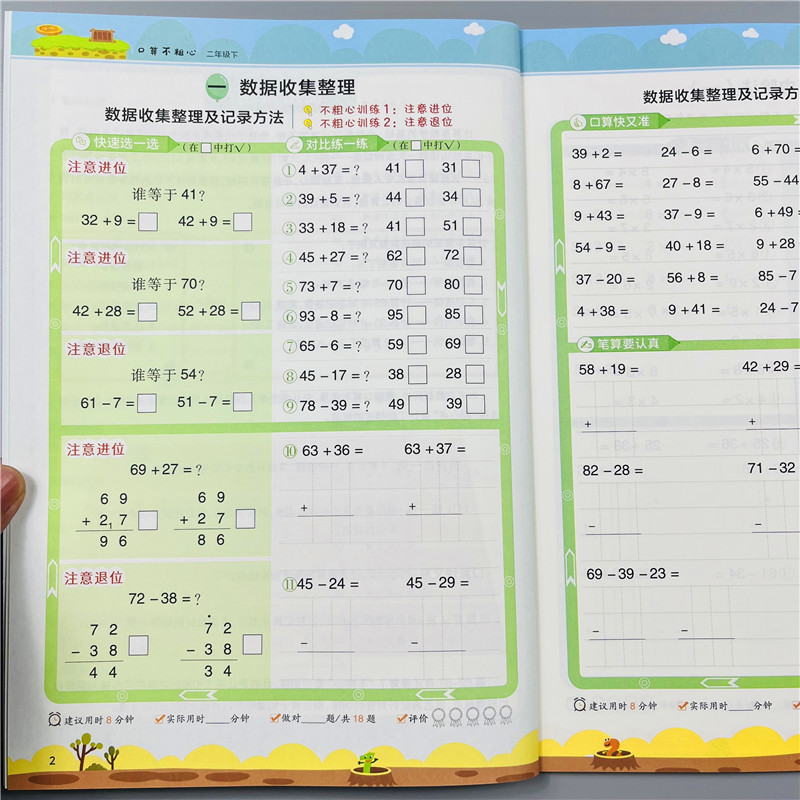 口算不粗心 二年级下
一 数据收集整理
数据收集整理及记录方法
不粗心训练1：注意进位
不粗心训练2：注意退位
快速选一选 （在□中打√）
注意进位
谁等于41？
32+9=□ 42+9=□
注意进位
谁等于70？
42+28=□ 52+28=□
注意退位
谁等于54？
61-7=□ 51-7=□
对比练一练 （在□中打√）
①4+37=？ 41□ 31□
②39+5=？ 44□ 34□
③33+18=？ 41□ 51□
④45+27=？ 62□ 72□
⑤73+7=？ 70□ 80□
⑥93-8=？ 95□ 85□
⑦65-6=？ 59□ 69□
⑧45-17=？ 38□ 28□
⑨78-39=？ 49□ 39□
注意进位
69+27=？
6 9 6 9
+ 2 1 7 □ + 2 7 □
9 6 8 6
⑩ 63+36= 63+37=
+ +
注意退位
72-38=？
7 2 7 2
- 3 8 □ - 3 8 □
4 4 3 4
⑪45-24= 45-29=
- -
建议用时8分钟 实际用时____分钟 做对____题/共18题 评价
2
数据收集整理及记录方
口算快又准
39+2= 24-6= 6+70=
8+67= 27-8= 55-44
9+43= 37-9= 6+49
54-9= 40+18= 9+28
37-20= 56+8= 85-7
4+38= 9+41= 24-7
笔算要认真
58+19= 42+29=
+ +
82-28= 71-32
- -
69-39-23=
- -
建议用时8分钟 实际用时____分钟